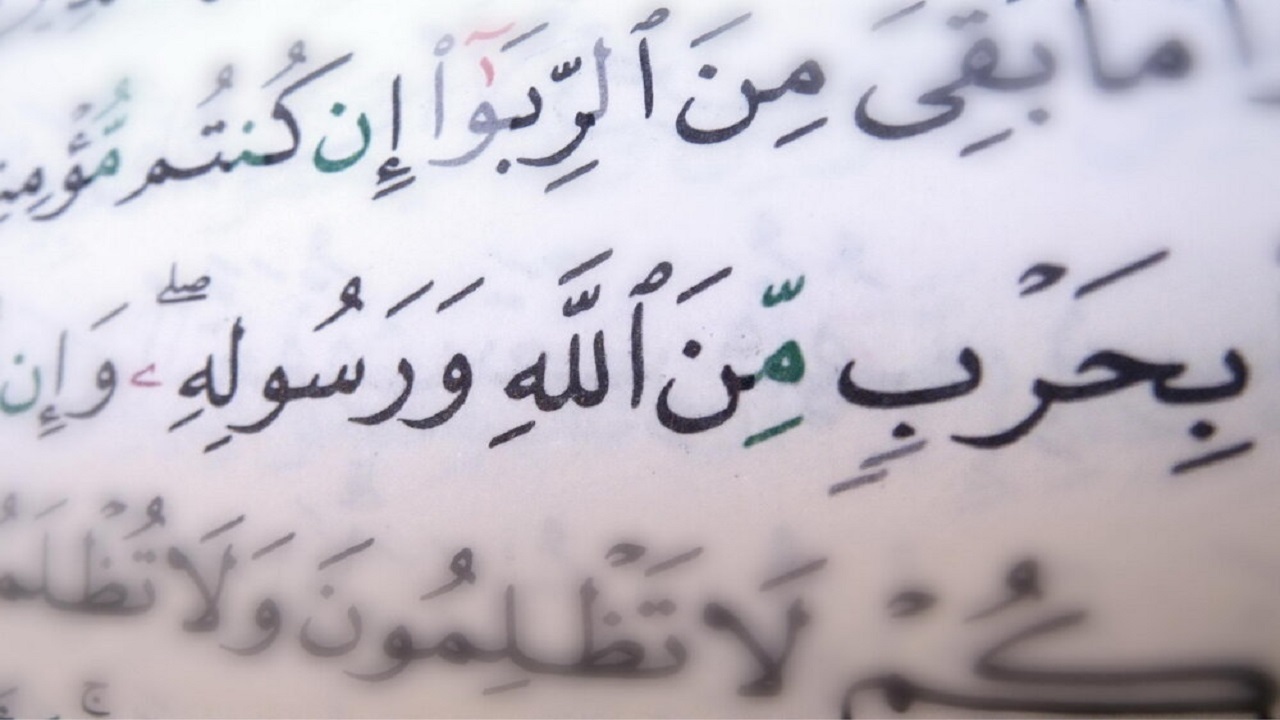 مَا بَقِىَ مِنَ ٱلرِّبَوٰٓا۟ إِن كُنتُم مُّؤْمِنِ
بِحَرْبٍ مِّنَ ٱللَّهِ وَرَسُولِهِۦ ۖ وَإِن
كُمْ لَا تَظْلِمُونَ وَلَا تُظْلَمُ